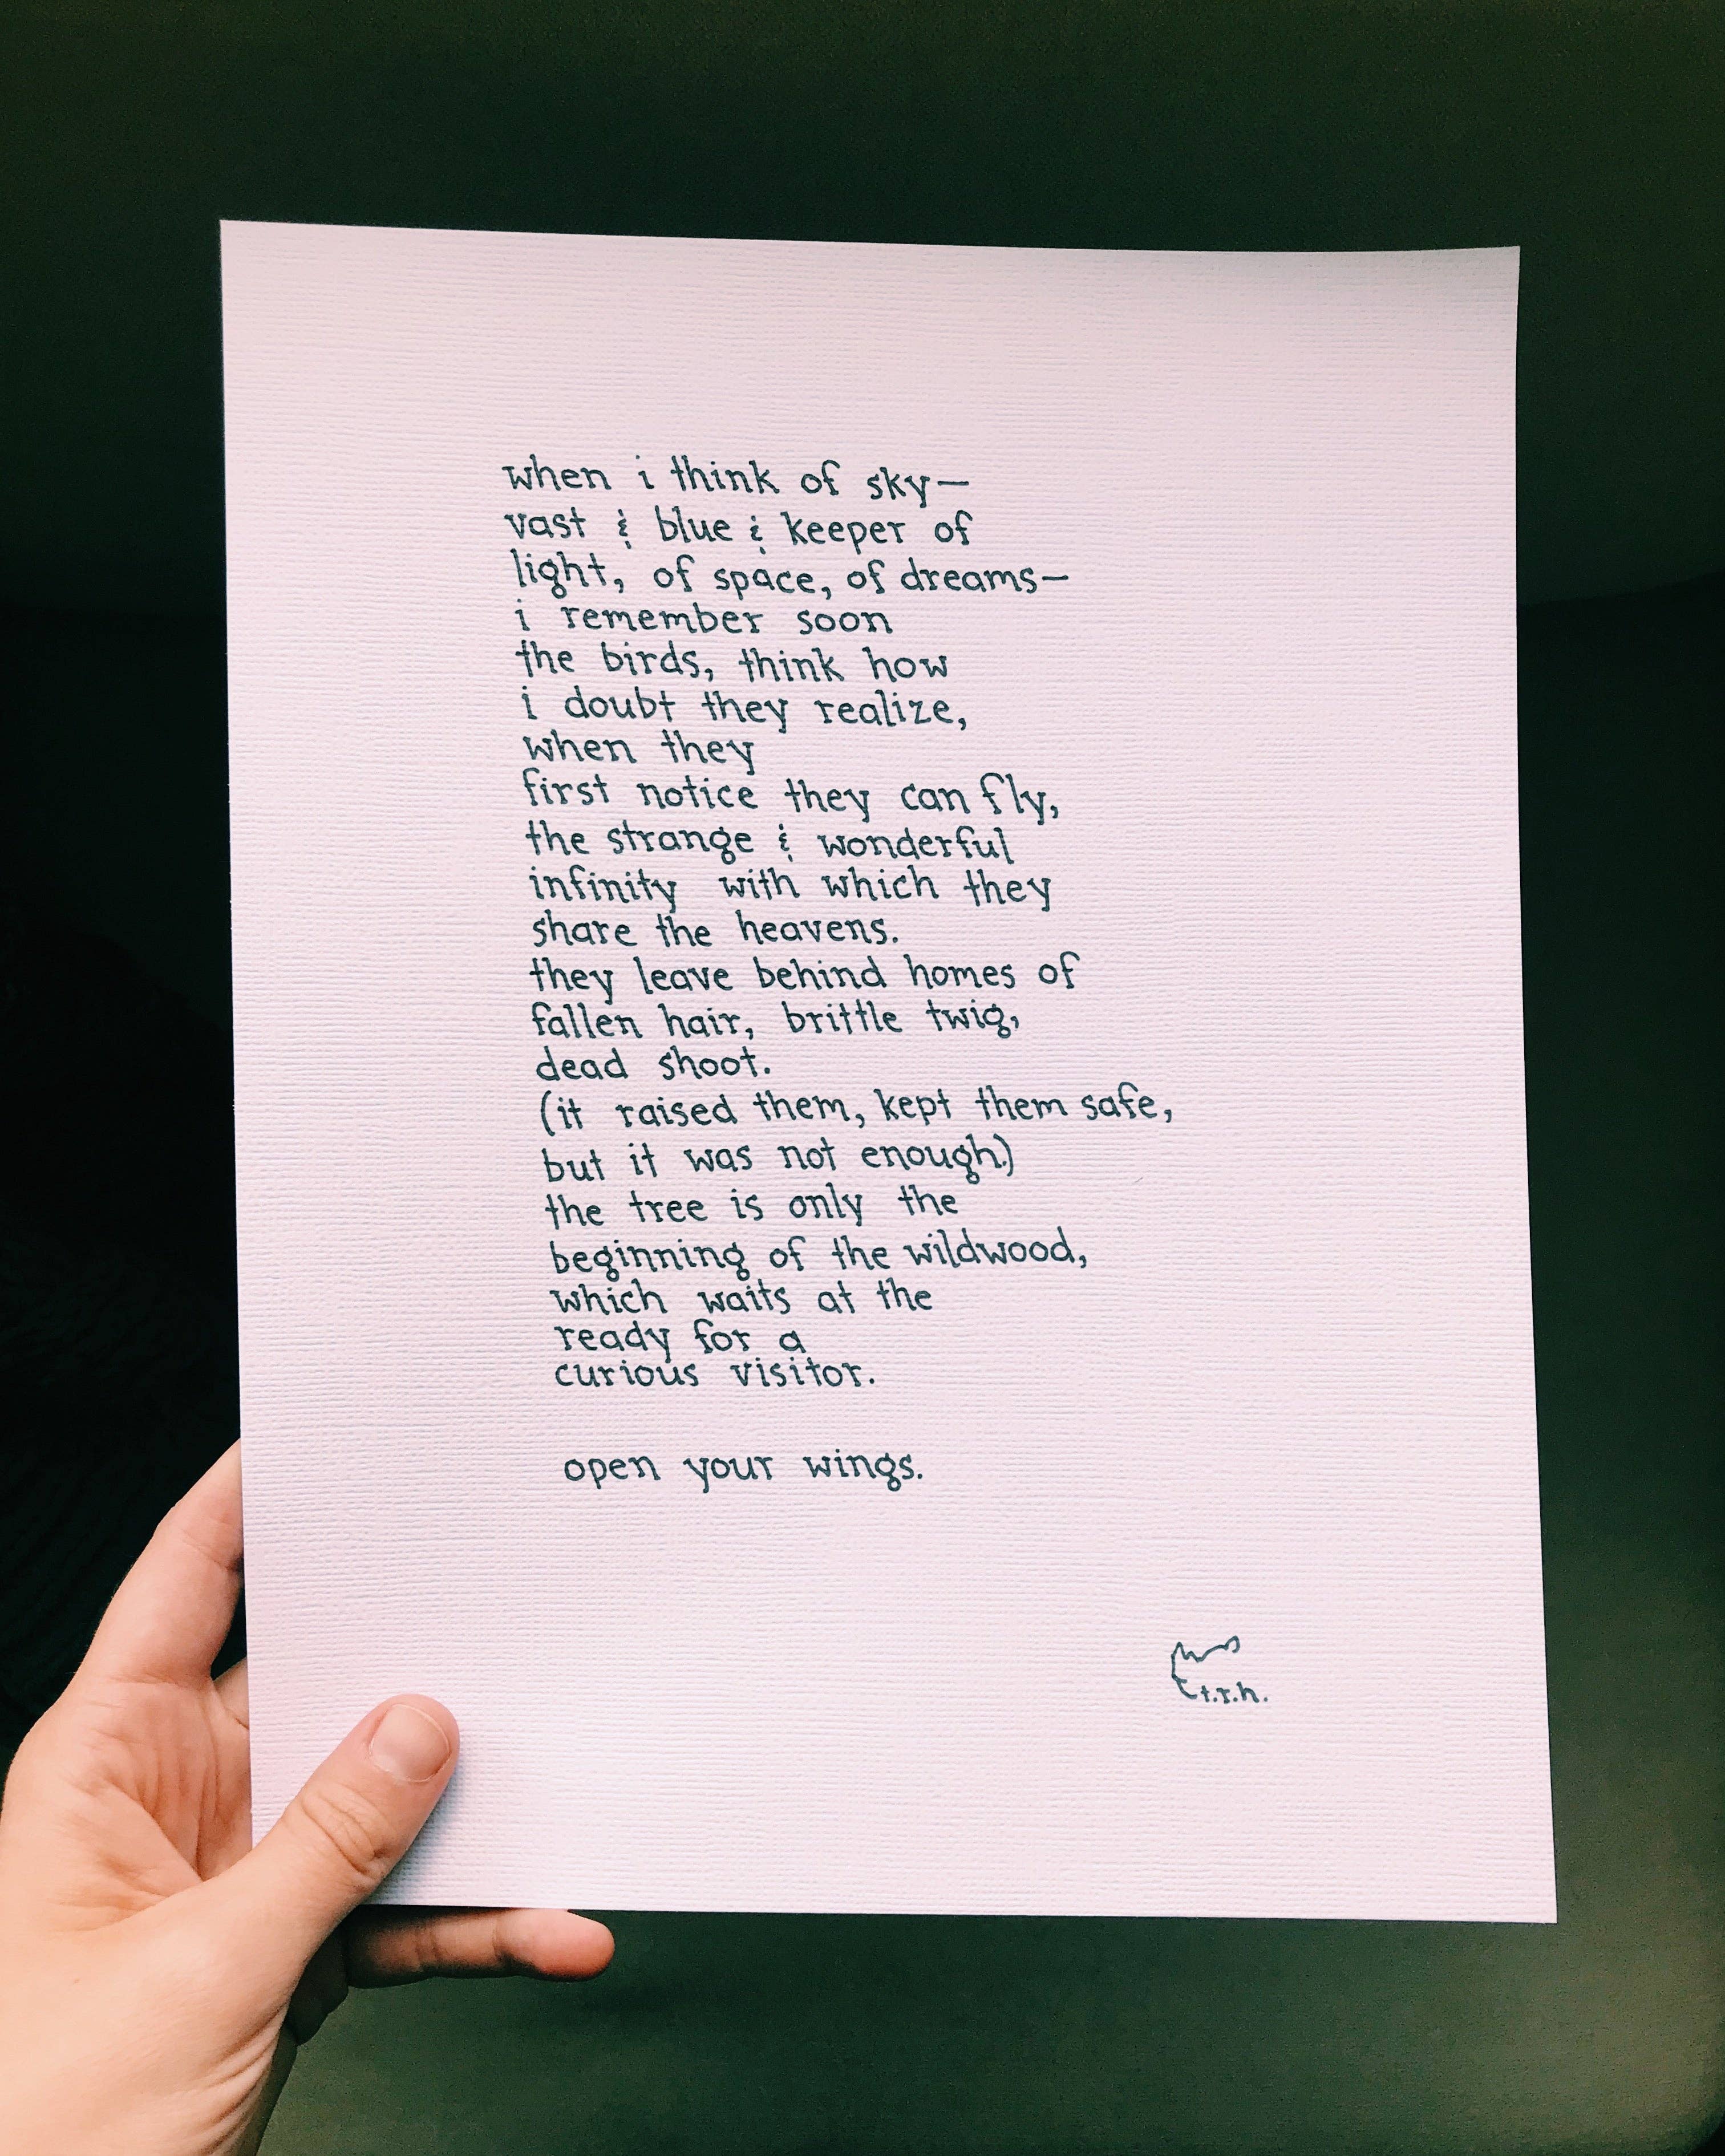 when i think of sky—
vast & blue & keeper of
light, of space, of dreams—
i remember soon
the birds, think how
i doubt they realize,
when they
first notice they can fly,
the strange & wonderful
infinity with which they
share the heavens.
they leave behind homes of
fallen hair, brittle twig,
dead shoot.
(it raised them, kept them safe,
but it was not enough.)
the tree is only the
beginning of the wildwood,
which waits at the
ready for a
curious visitor.
open your wings.
t.r.h.